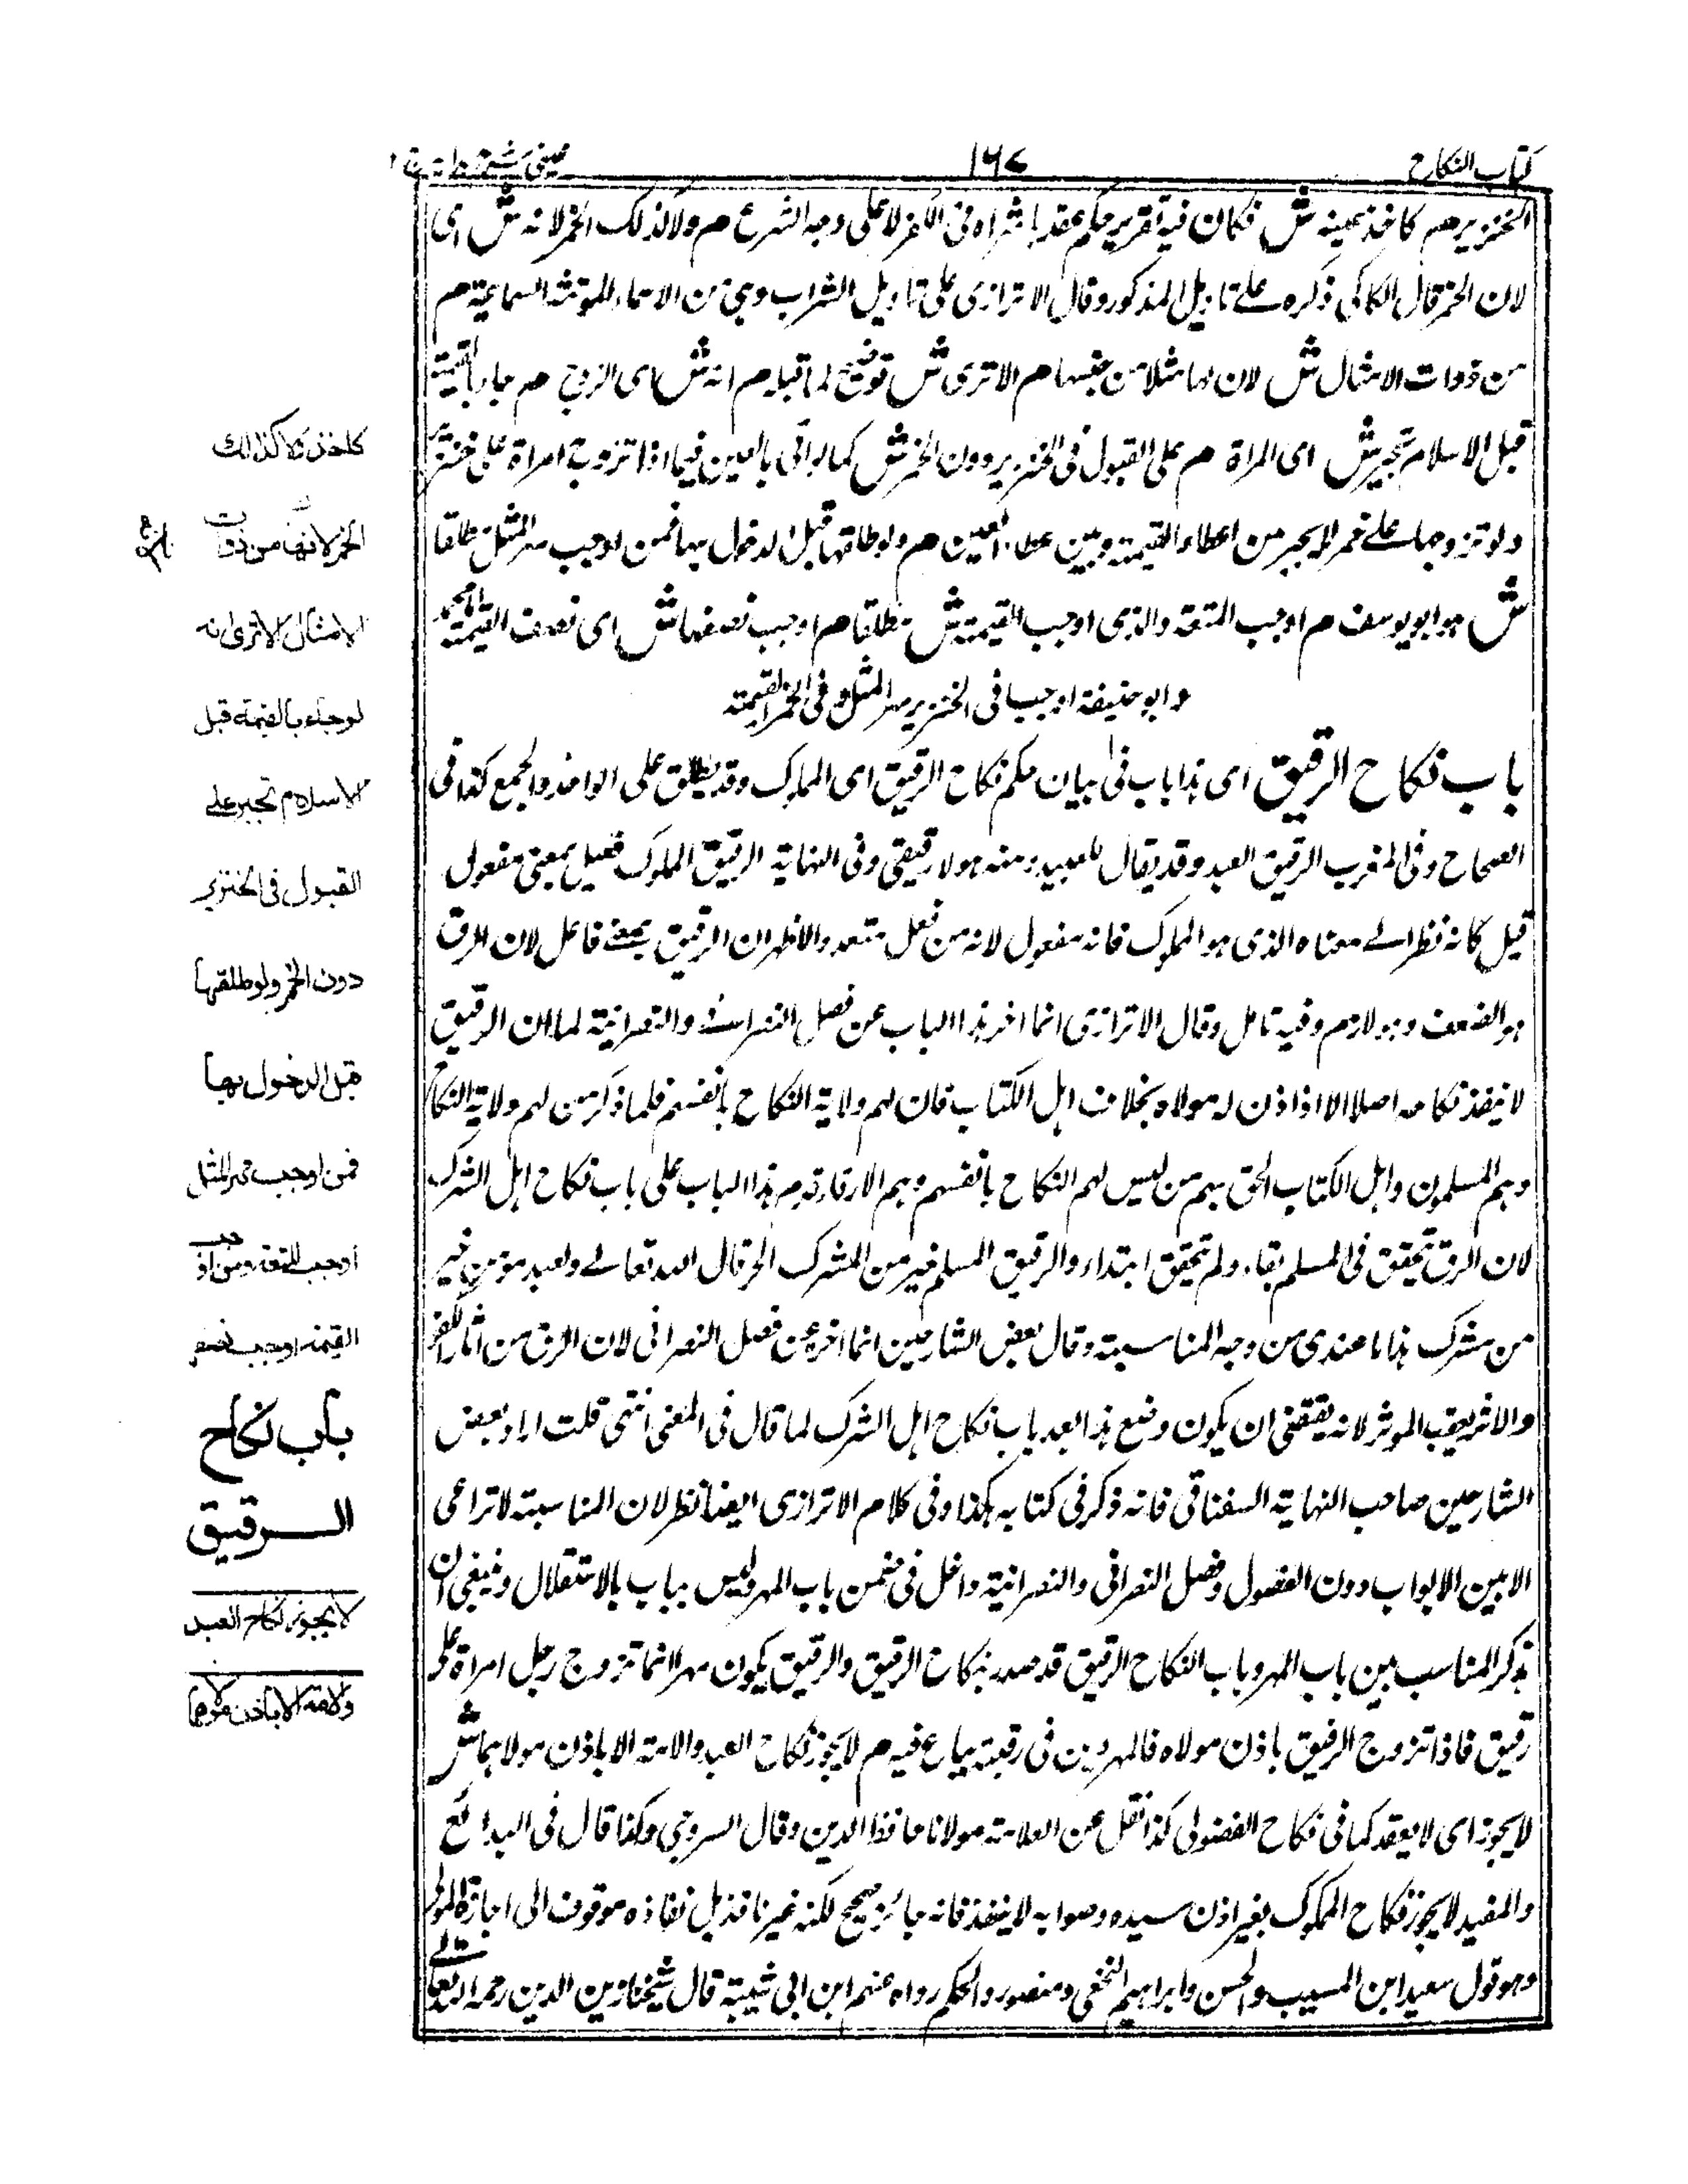 كتاب النكاح
١٦٧
عينى شرح هداية ج
الخنزير م كاخذ عينه ش فكان فيه تقرير حكم عقد باشراه فى الكفر لا على وجه الشرع م ولا كذلك الخمر لانه ش اى
لان الخمر قال الكاكى ذكره على تاويل المذكور وقال الاترازى على تاويل الشراب وهى من الاسماء المونثه السماعية م
من ذوات الامثال ش لان لها مثلا من جنسها م الا ترى ش توضيح لما قبله م انه ش اى الزوج م جاء بالقيمة
قبل الاسلام تجبر ش اى المراة م على القبول فى الخنزير دون الخمر ش كما لو اتى بالعين فيما اذا تزوج امراة على خنزير
ولو تزوجها على خمر لا يجبر من اعطاء القيمة وبين عطاء العين م ولو طلقها قبل الدخول بها فمن اوجب مهر المثل مطلقا
ش هو ابو يوسف م اوجب المتعة والذى اوجب القيمة ش مطلقا م اوجب نصفها ش اى نصف القيمة
وابو حنيفة اوجب فى الخنزير مهر المثل وفى الخمر القيمة
باب نكاح الرقيق اى هذا باب فى بيان حكم نكاح الرقيق اى المملوك وقد يطلق على الواحد والجمع كذا فى
الصحاح وفى المغرب الرقيق العبد وقد يقال للعبيد ومنه هولاء رقيقى وفى النهاية الرقيق المملوك فعيل بمعنى مفعول
قيل كانه نظر الى معناه الذى هو المملوك فانه مفعول لانه من فعل متعد والاظهر ان الرقيق بمعنى فاعل لان الرق
هو الضعف وهو لازم وفيه تامل وقال الاترازى انما اخر هذا الباب عن فصل النصرانى والنصرانية لما ان الرقيق
لا ينفذ نكاحه اصلا الا اذا اذن له مولاه بخلاف اهل الكتاب فان لهم ولاية النكاح بانفسهم فلما ذكر من لهم ولاية النكاح
وهم المسلمون واهل الكتاب الحق بهم من ليس لهم النكاح بانفسهم وهم الارقاء قدم هذا الباب على باب نكاح اهل الشرك
لان الرق تحقق فى المسلم بقاء ولم يتحقق ابتداء والرقيق المسلم خير من المشرك الحر قال الله تعالى ولعبد مومن خير
من مشرك هذا ما عندى من وجه المناسبة وقال بعض الشارحين انما اخره عن فصل النصرانى لان الرق من اثار الكفر
والاثر يعقب الموثر لانه يقتضى ان يكون وضع هذا بعد باب نكاح اهل الشرك لما قال فى المعنى انتهى قلت اراد ببعض
الشارحين صاحب النهاية السغناقى فانه ذكر فى كتابه هكذا وفى كلام الاترازى ايضا نظر لان المناسبة لا تراعى
الا بين الابواب دون الفصول وفصل النصرانى والنصرانية داخل فى ضمن باب المهر وليس بباب بالاستقلال وينبغى ان
يذكر المناسب بين باب المهر وباب النكاح الرقيق قد صدر بنكاح الرقيق والرقيق يكون مهرا انما تزوج رجل امراة على
رقيق فاذا تزوج الرقيق باذن مولاه فالمهر دين فى رقبته يباع فيه م لا يجوز نكاح العبد والامة الا باذن مولاهما ش
لا يجوز اى لا ينعقد كما فى نكاح الفضولى كذا نقل عن العلامة مولانا حافظ الدين وقال السروجى وكذا قال فى البدائع
والمفيد لا يجوز نكاح المملوك بغير اذن سيده وصوابه لا ينفذ فانه جائز صحيح لكنه غير نافذ بل نفاذه موقوف الى اجازة المولى
وهو قول سعيد ابن المسيب والحسن وابراهيم النخعى ومنصور والحكم رواه عنهم ابن ابى شيبة قال شيخنا زين الدين رحمه الله تعالى
كاخذ ولا كذلك
الخمر لانها من ذوات
الامثال الا ترى انه
لو جاء بالقيمة قبل
الاسلام تجبر على
القبول فى الخنزير
دون الخمر ولو طلقها
قبل الدخول بها
فمن اوجب مهر المثل
اوجب المتعة ومن اوجب
القيمة اوجب نصفها
باب نكاح
الرقيق
لا يجوز نكاح العبد
والامة الا باذن مولاهما